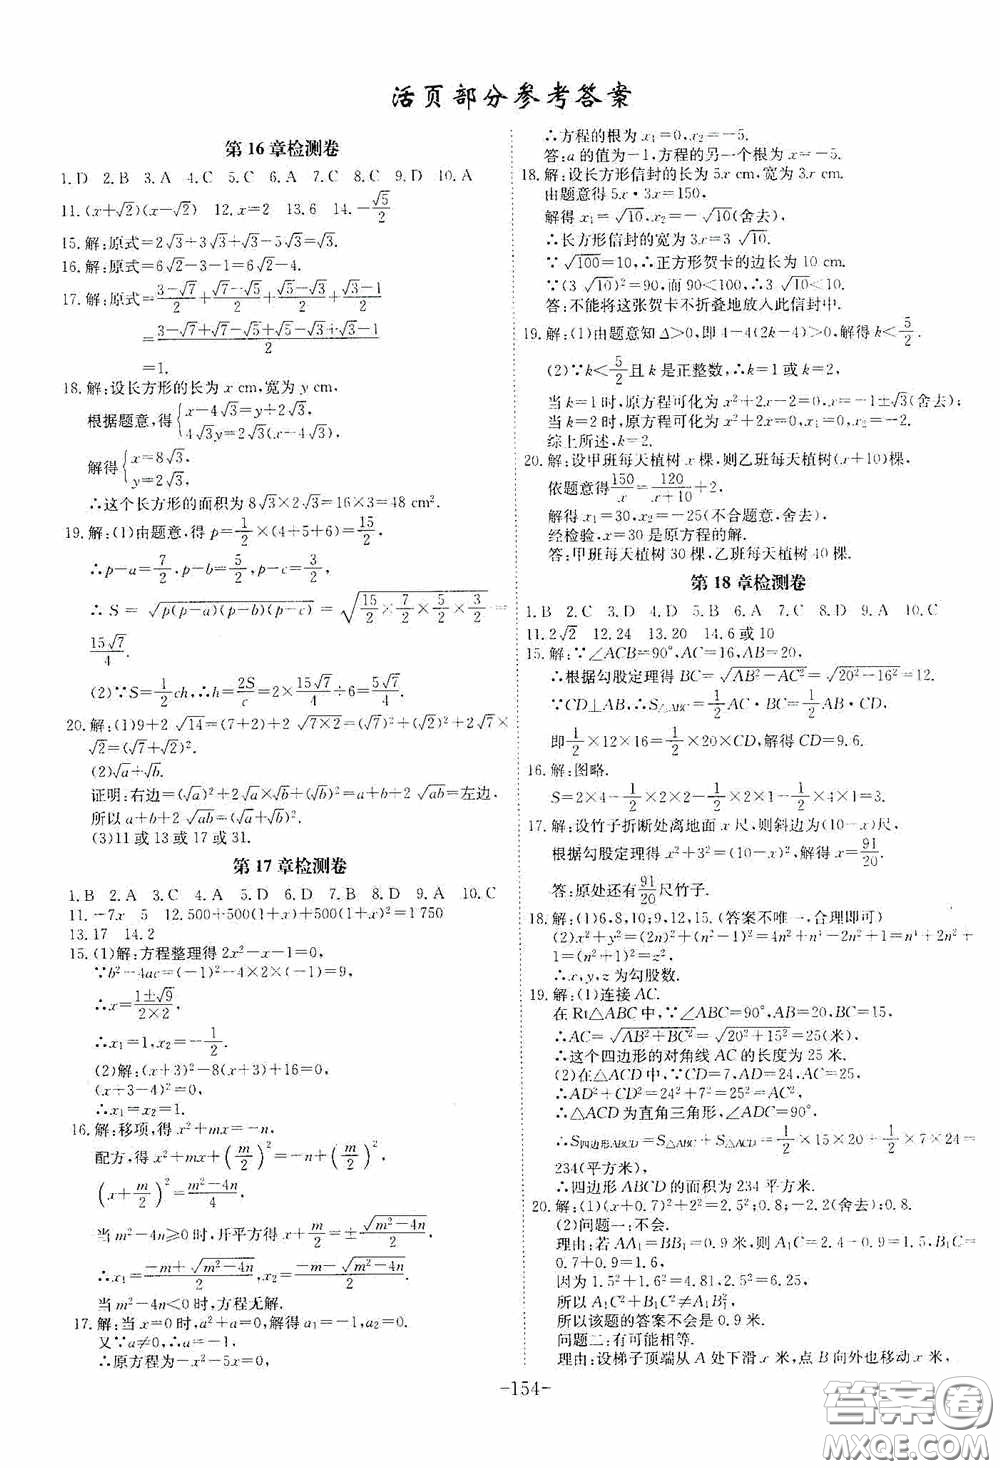 活页部分参考答案
第16章检测卷
1.D 2.B 3.A 4.C 5.C 6.A 7.C 8.C 9.D 10.A
11.(x+√2)(x-√2) 12.x=2 13.6 14.-√5/2
15.解:原式=2√3+3√3+√3-5√3=√3.
16.解:原式=6√2-3-1=6√2-4.
17.解:原式=(3-√7)/2+(√7-√5)/2+(√5-√3)/2+(√3-1)/2
=(3-√7+√7-√5+√5-√3+√3-1)/2
=1.
18.解:设长方形的长为 x cm,宽为 y cm,
根据题意,得{x-4√3=y+2√3,
4√3y=2√3(x-4√3),
解得{x=8√3,
y=2√3,
∴这个长方形的面积为 8√3×2√3=16×3=48 cm².
19.解:(1)由题意,得 p=1/2×(4+5+6)=15/2,
∴p-a=7/2,p-b=5/2,p-c=3/2,
∴S=√(p(p-a)(p-b)(p-c))=√(15/2×7/2×5/2×3/2)=
15√7/4.
(2)∵S=1/2ch,∴h=2S/c=2×15√7/4÷6=5√7/4.
20.解:(1)9+2√14=(7+2)+2√(7×2)=(√7)²+(√2)²+2√7×
√2=(√7+√2)².
(2)√a+√b.
证明:右边=(√a)²+2√a×√b+(√b)²=a+b+2√ab=左边,
所以 a+b+2√ab=(√a+√b)².
(3)11 或 13 或 17 或 31.
第17章检测卷
1.B 2.A 3.C 4.A 5.D 6.D 7.B 8.D 9.A 10.C
11.-7x 5 12.500+500(1+x)+500(1+x)²=1750
13.17 14.2
15.(1)解:方程整理得 2x²-x-1=0,
∵b²-4ac=(-1)²-4×2×(-1)=9,
∴x=(1±√9)/(2×2),
∴x₁=1,x₂=-1/2.
(2)解:(x+3)²-8(x+3)+16=0,
(x+3-4)²=0,
∴x₁=x₂=1.
16.解:移项,得 x²+mx=-n,
配方,得 x²+mx+(m/2)²=-n+(m/2)²,
(x+m/2)²=(m²-4n)/4,
当 m²-4n≥0 时,开平方得 x+m/2=±√(m²-4n)/2,
∴x₁=(-m+√(m²-4n))/2,x₂=(-m-√(m²-4n))/2.
当 m²-4n<0 时,方程无解.
17.解:当 x=0 时,a²+a=0,解得 a₁=-1,a₂=0.
又∵a≠0,∴a=-1,
∴原方程为-x²-5x=0,
∴方程的根为 x₁=0,x₂=-5.
答:a 的值为-1,方程的另一个根为 x=-5.
18.解:设长方形信封的长为 5x cm,宽为 3x cm.
由题意得 5x·3x=150,
解得 x₁=√10,x₂=-√10(舍去),
∴长方形信封的宽为 3x=3√10.
∵√100=10,∴正方形贺卡的边长为 10 cm.
∵(3√10)²=90,而 90<100,∴3√10<10.
答:不能将这张贺卡不折叠地放入此信封中.
19.解:(1)由题意知 Δ>0,即 4-4(2k-4)>0,解得 k<5/2.
(2)∵k<5/2且 k 是正整数,∴k=1 或 k=2,
当 k=1 时,原方程可化为 x²+2x-2=0,x=-1±√3(舍去);
当 k=2 时,原方程可化为 x²+2x=0,x₁=0,x₂=-2.
综上所述,k=2.
20.解:设甲班每天植树 x 棵,则乙班每天植树(x+10)棵,
依题意得150/x=120/(x+10)+2,
解得 x₁=30,x₂=-25(不合题意,舍去),
经检验,x=30 是原方程的解.
答:甲班每天植树 30 棵,乙班每天植树 40 棵.
第18章检测卷
1.B 2.C 3.D 4.D 5.B 6.A 7.C 8.D 9.A 10.C
11.2√2 12.24 13.20 14.6 或 10
15.解:∵∠ACB=90°,AC=16,AB=20,
∴根据勾股定理得 BC=√(AB²-AC²)=√(20²-16²)=12.
∵CD⊥AB,∴S△ABC=1/2AC·BC=1/2AB·CD,
即1/2×12×16=1/2×20×CD,解得 CD=9.6.
16.解:图略.
S=2×4-1/2×2×2-1/2×2×2-1/2×1×1... =3.
17.解:设竹子折断处离地面 x 尺,则斜边为(10-x)尺,
根据勾股定理得 x²+3²=(10-x)²,解得 x=91/20.
答:原处还有91/20尺竹子.
18.解:(1)6,8,10;9,12,15.(答案不唯一,合理即可)
(2)x²+y²=(2n)²+(n²-1)²=4n²+n⁴-2n²+1=n⁴+2n²+
1=(n²+1)²=z²,
∴x,y,z 为勾股数.
19.解:(1)连接 AC.
在 Rt△ABC 中,∵∠ABC=90°,AB=20,BC=15,
∴AC=√(AB²+BC²)=√(20²+15²)=25(米).
∴这个四边形的对角线 AC 的长度为 25 米.
(2)在△ACD 中,∵CD=7,AD=24,AC=25,
∴AD²+CD²=24²+7²=25²=AC²,
∴△ACD 为直角三角形,∠ADC=90°.
∴S四边形ABCD=S△ABC+S△ACD=1/2×15×20+1/2×7×24=
234(平方米),
∴四边形 ABCD 的面积为 234 平方米.
20.解:(1)(x+0.7)²+2²=2.5²;0.8;-2.2(舍去);0.8.
(2)问题一:不会.
理由:若 AA₁=BB₁=0.9 米,则 A₁C=2.4-0.9=1.5,B₁C=
0.7+0.9=1.6.
因为 1.5²+1.6²=4.81,2.5²=6.25,
所以 A₁C²+B₁C²≠A₁B₁²,
所以该题的答案不会是 0.9 米.
问题二:有可能相等.
理由:设梯子顶端从 A 处下滑 x 米,点 B 向外也移动 x 米,
-154-
答案圈
MXQE.COM